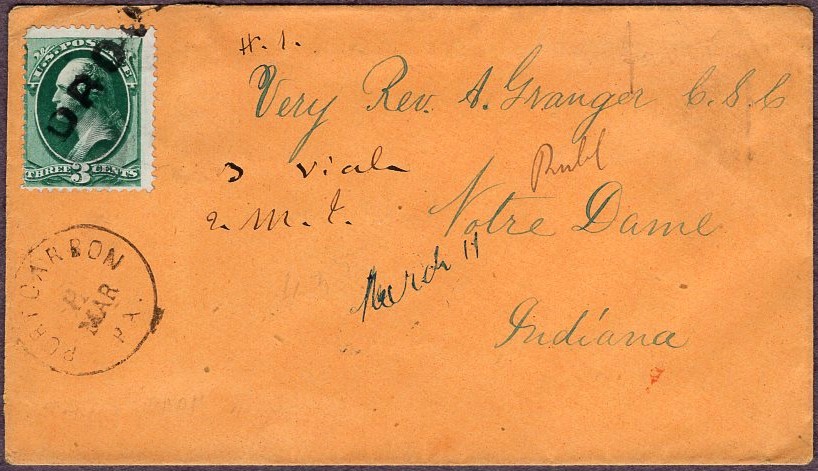 U.S. POSTAGE
THREE 3 CENTS
H. 1.
Very Rev. A. Granger C.S.C
3 vials
2. M. t.
Notre Dame
March 11
Indiana
PORT CARBON
MAR
PA.